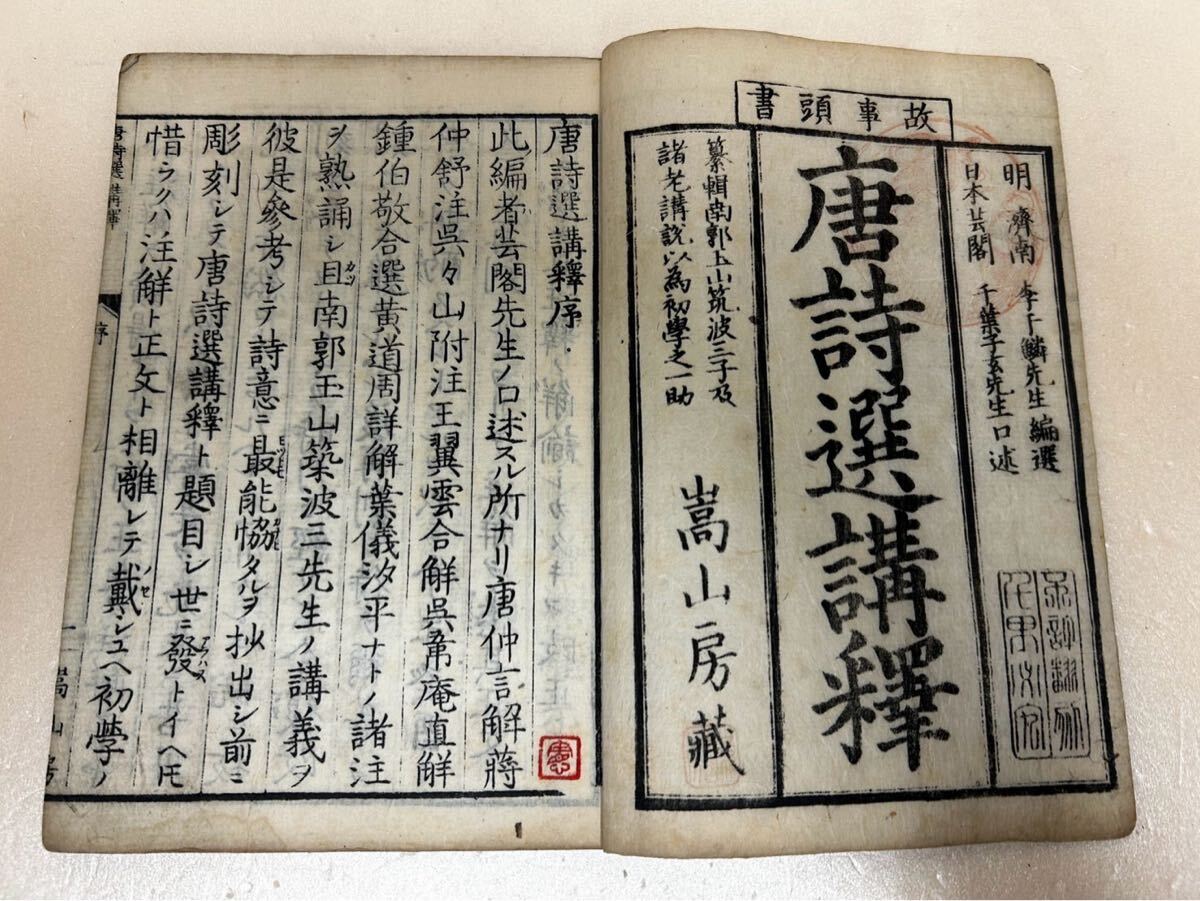 故事頭書
明 濟南 李于鱗先生編選
日本芸閣 千葉子玄先生口述
唐詩選講釋
纂輯南郭玉山筑波三子及
諸老講説以為初學之一助
嵩山房藏
唐詩選講釋序
此編者芸閣先生ノ口述スル所ナリ唐仲言解蔣
仲舒注呉々山附注王翼雲合解呉䋖庵直解
鍾伯敬合選黄道周詳解葉儀汐平ナトノ諸注
ヲ熟誦シ且カツ南郭玉山築波三先生ノ講義ヲ
彼是參考シテ詩意ニ最モツトモ能協カナヒタルヲ抄出シ前ニ
彫刻シテ唐詩選講釋ト題目シ世ニ發アラハストイヘ𪜈
惜ラクハ注解ト正文ト相離レテ戴ノセシユヘ初學ノ
唐詩選講釋
序
一
嵩山房